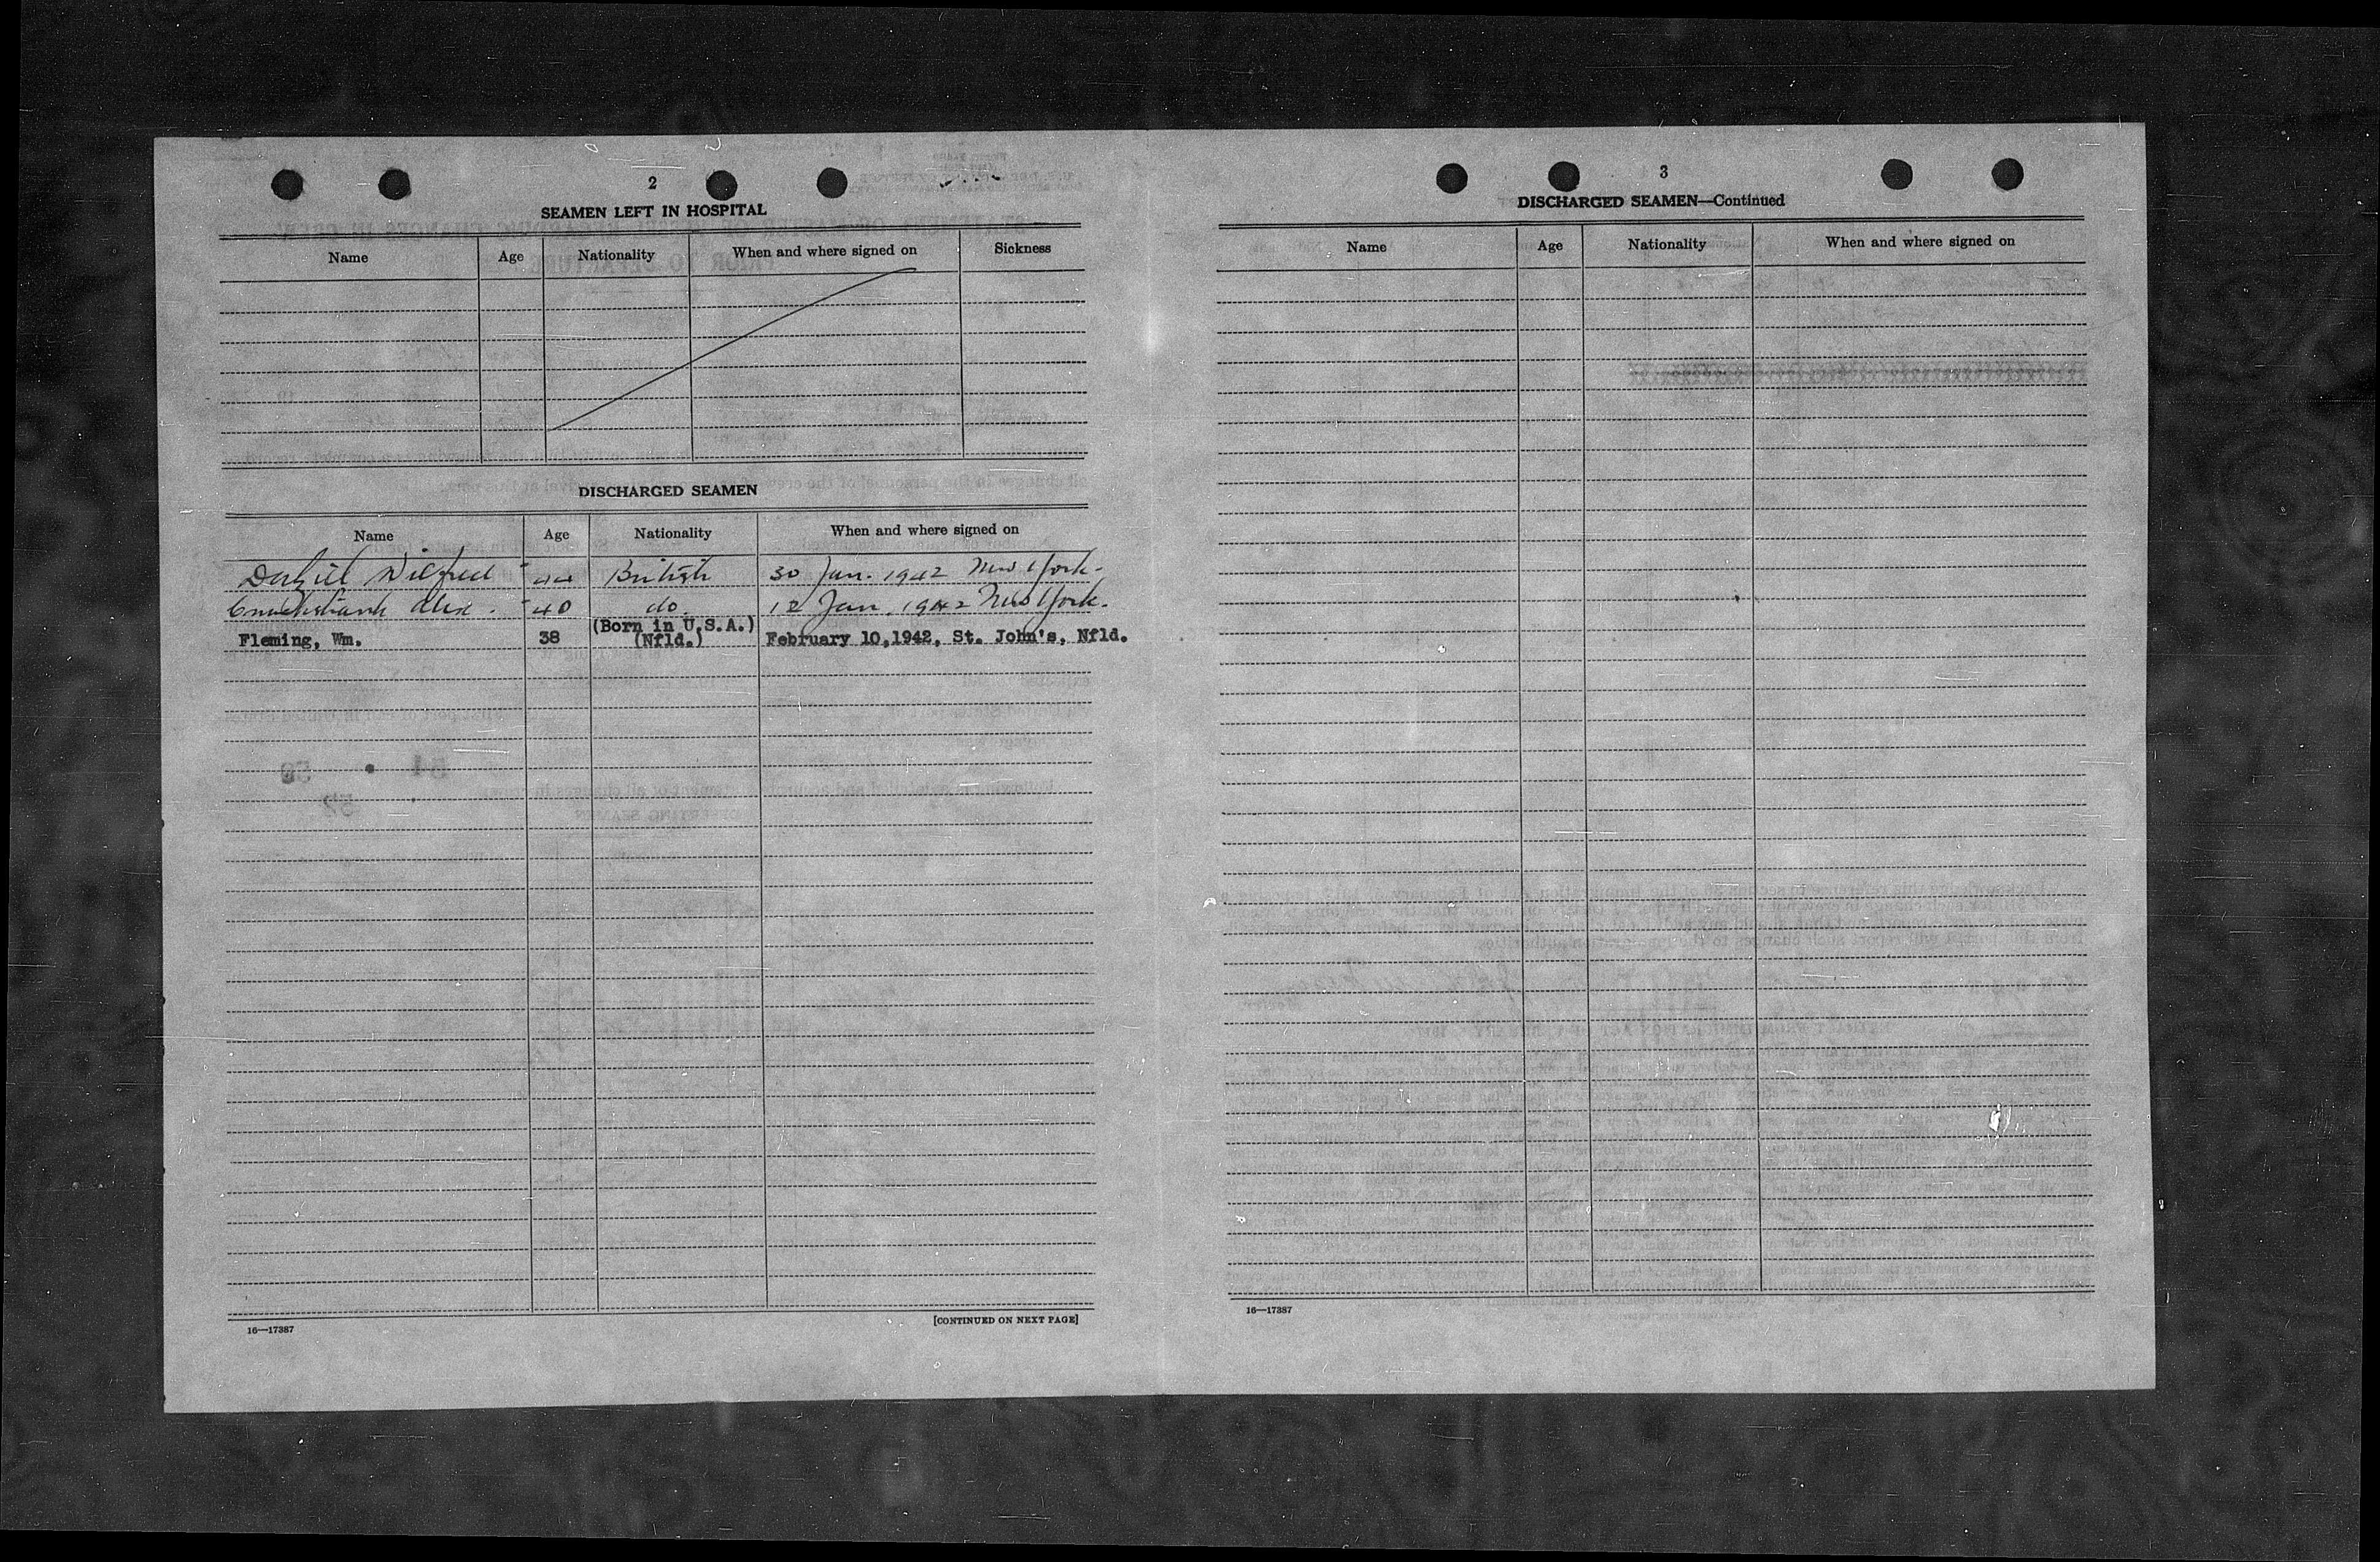 2
SEAMEN LEFT IN HOSPITAL
Name Age Nationality When and where signed on Sickness
DISCHARGED SEAMEN
Name Age Nationality When and where signed on
Dalziel Wilfred 44 British 30 Jan. 1942 New York.
Cruickshank Alex. 40 do. 12 Jan. 1942 New York.
(Born in U.S.A.)
Fleming, Wm. 38 (Nfld.) February 10,1942, St. John's, Nfld.
16—17387 [CONTINUED ON NEXT PAGE]
3
DISCHARGED SEAMEN—Continued
Name Age Nationality When and where signed on
16—17387